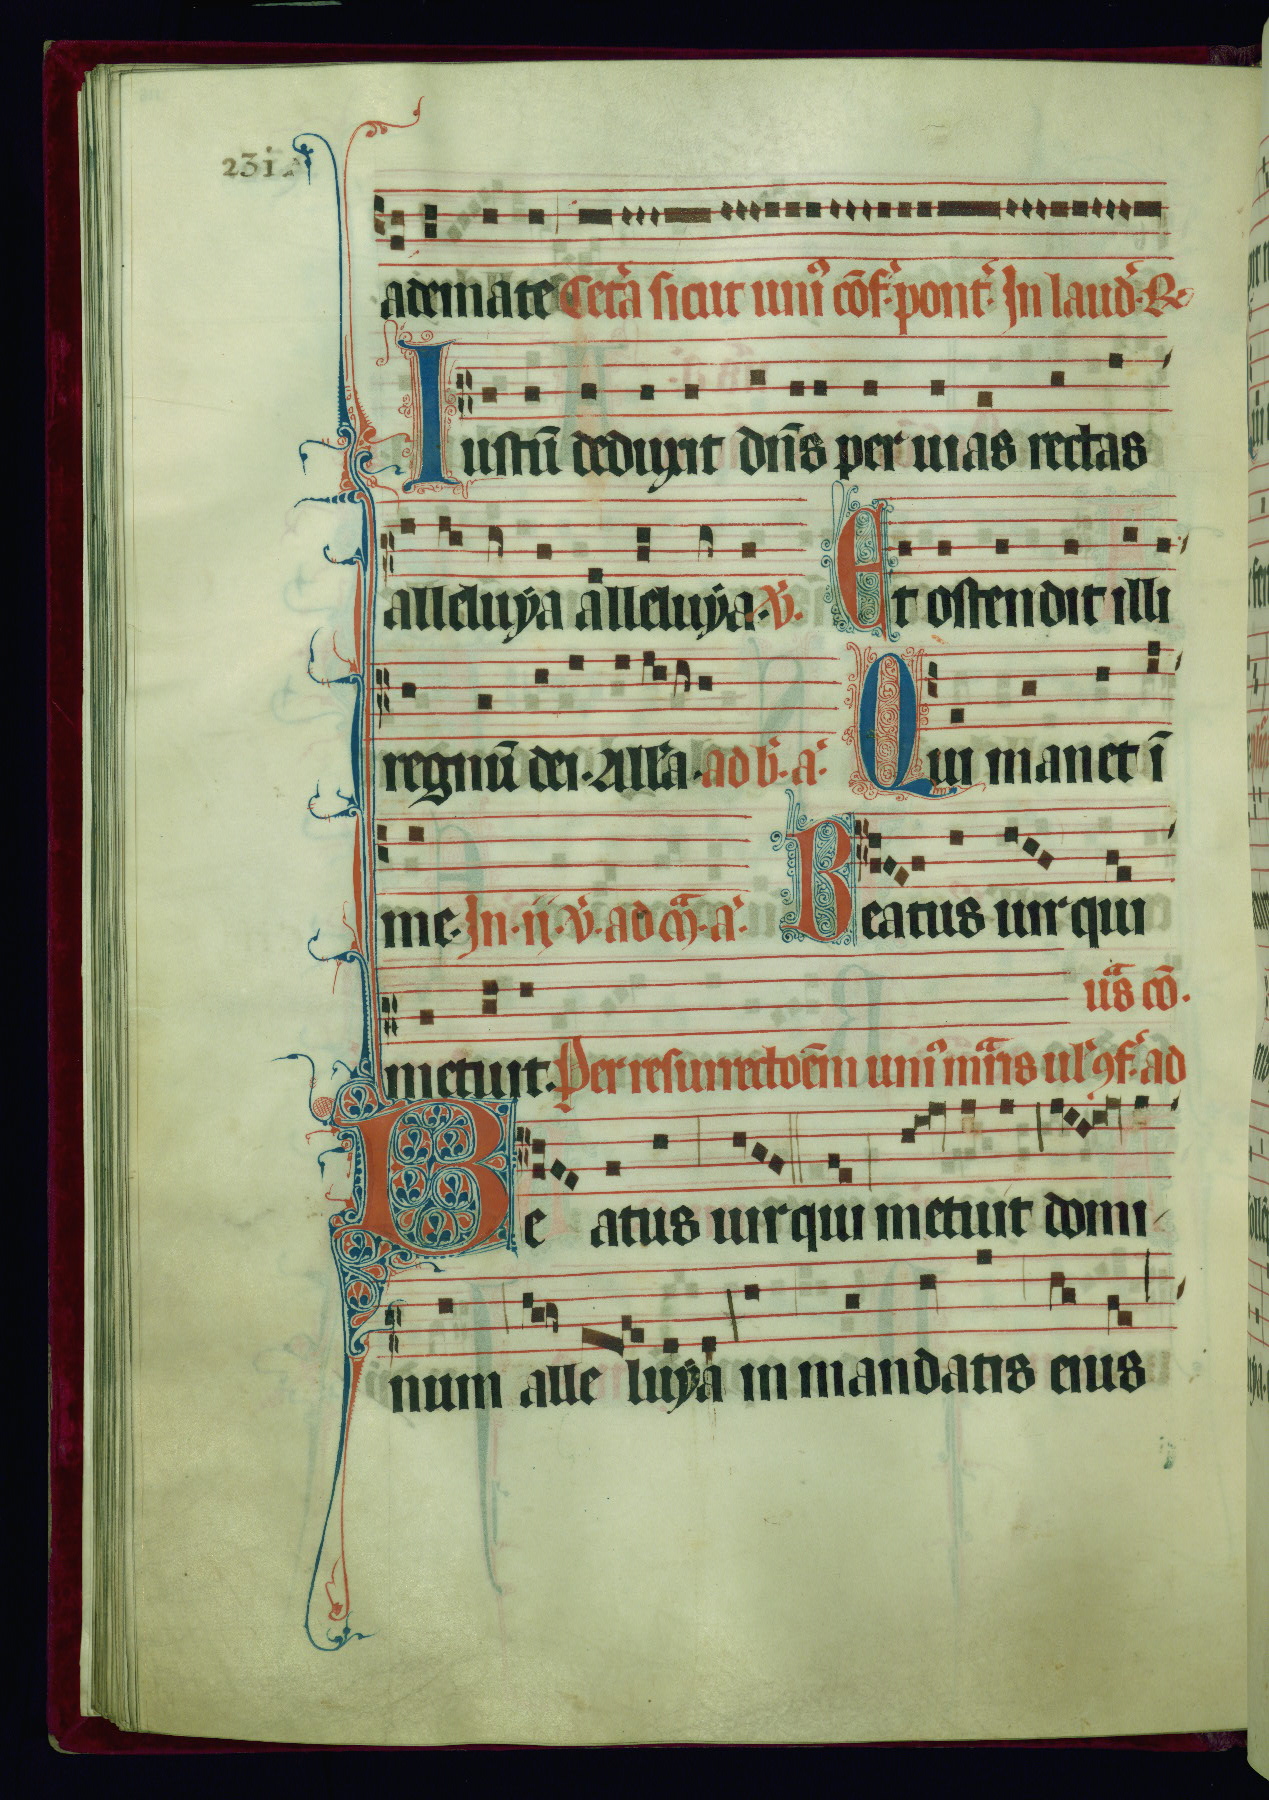 231
ademate Cet̾a sicut uni᾽ cōf̾ pont̾ Jn laud̾ R᷒
Iustū deduxit dn̄s per uias rectas
alleluÿa alleluÿa. V̾. Et ostendit illi
regnū dei. All'a. ad b̾. a̾. Qui manet ī
me. Jn. ii. v̾. ad m̄. a̾. Beatus uir qui
uās cō.
metuit. Per resurrectoēm uni᾽ mr̄is ul' ꝯf̾. ad
Be atus uir qui metuit domi
num alle luÿa in mandatis eius